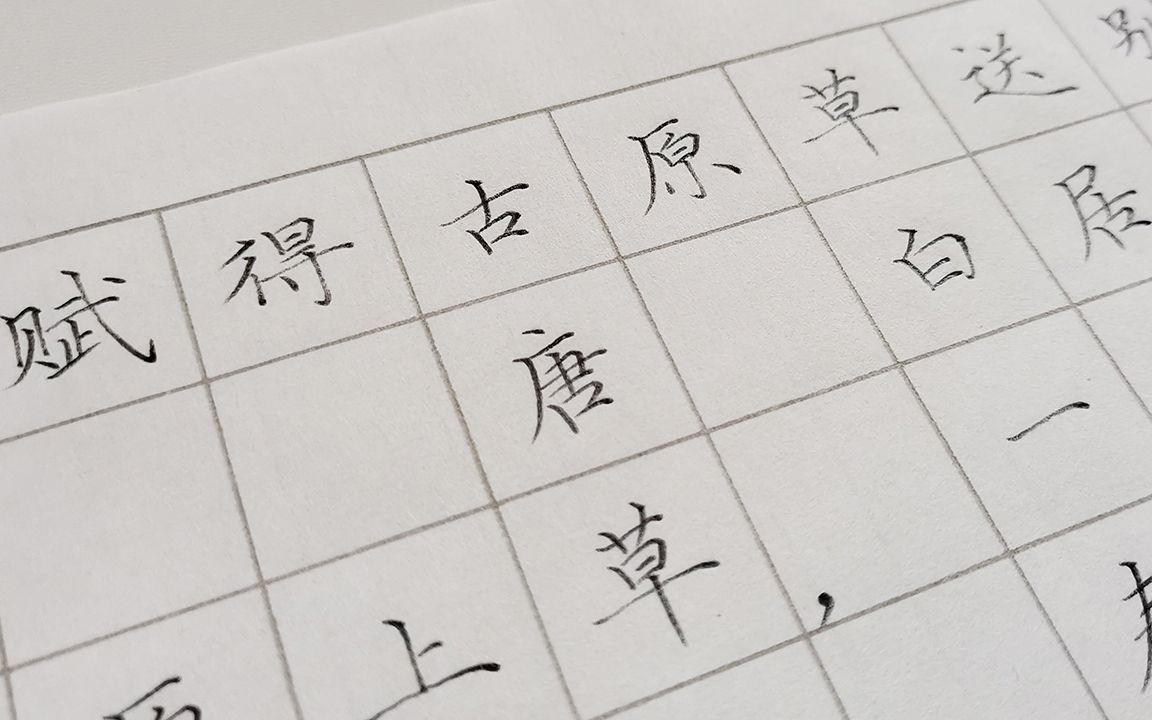 赋得古原草送别
唐 白居
上草，一